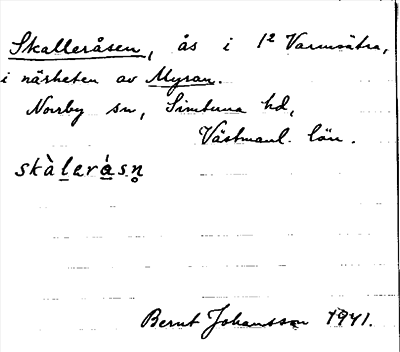 Skalleråsen, ås i 1² Varmsätra,
i närheten av Myran.
Norrby sn, Simtuna hd,
Västmanl. län.
skàlerásn̥
Bernt Johansson 1941.